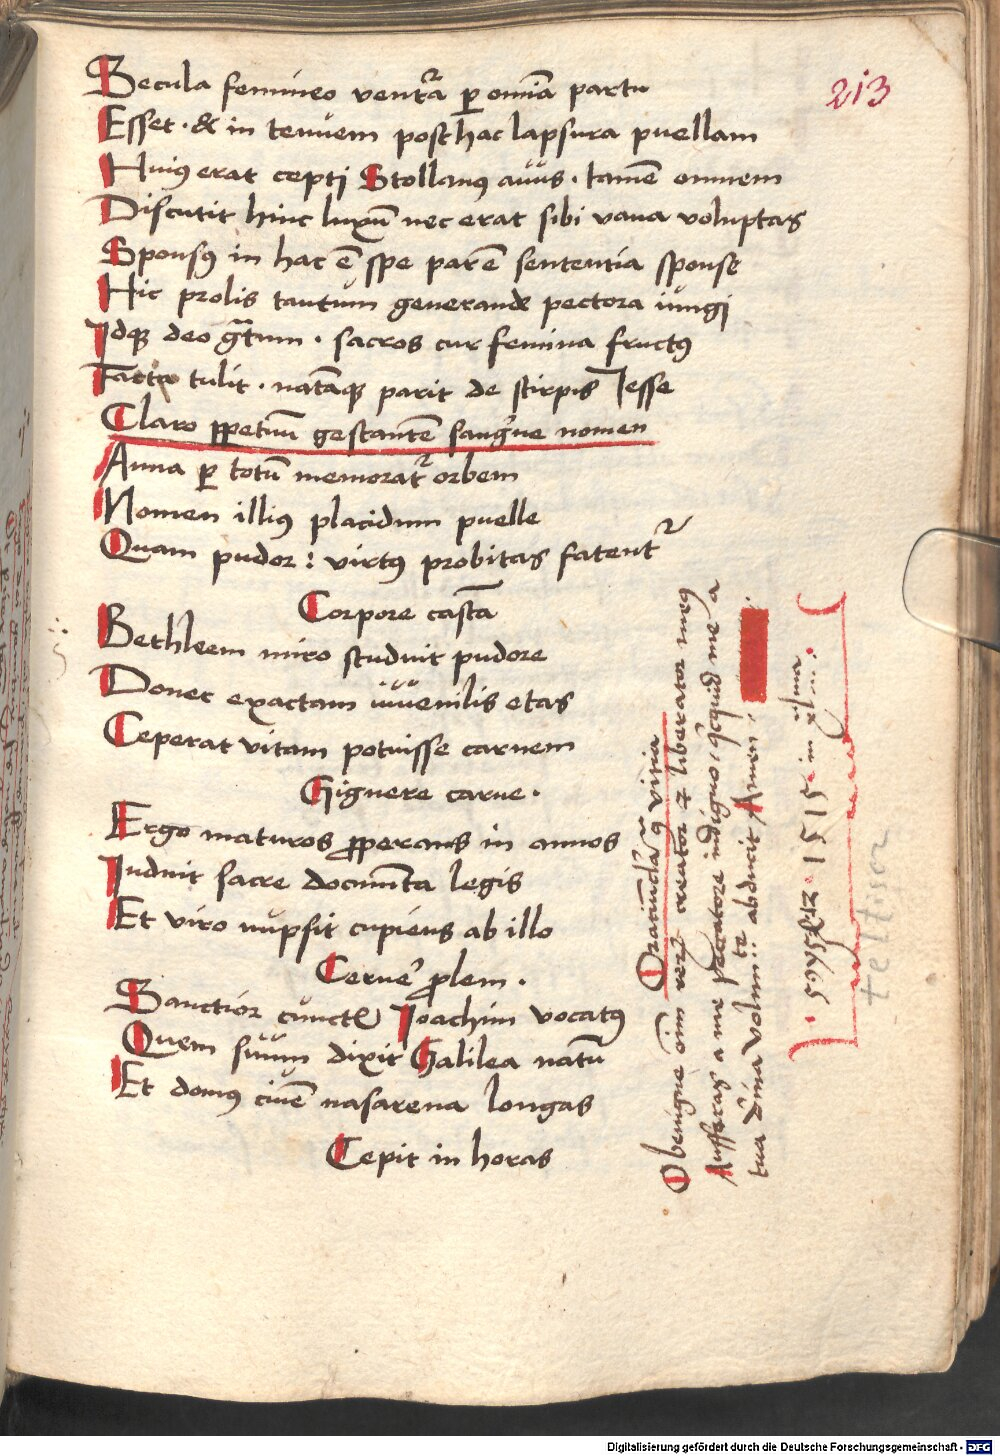 213
Secula femineo ventr̃a ꝑ om̃ia partu
Esset · & in tenuem posthac lapsura puellam
Huiꝰ erat cepti Stollanꝰ auus · tamẽ omnem
Discutit hinc luxũ nec erat sibi vana voluptas
Sponsꝰ in hac ẽ spe parẽ sententia sponse
Hic prolis tantum generande pectora iungi
Idqꝫ deo gr̃tum · sacros cur femina fructꝰ
Facta tulit · natãqꝫ parit de stirpis Jesse
Claro ꝑpetuũ gestantẽ sangˀne nomen
Anna ꝑ totũ memorat᷑ orbem
Nomen illiꝰ placidum puelle
Quam pudor : virtꝰ probitas fatent᷑
Corpore castã
Bethleem miro studuit pudore
Donec exactam iuuenilis etas
Ceperat vitam potuisse carnem
Gignere carne ·
Ergo maturos ꝓperans in annos
Induit sacre documẽta legis
Et viro nupsit cupiens ab illo
Cerneˀ ꝓlem ·
Sanctior cunctꝭ Joachim vocatꝰ
Quem suum dixit Galilea natũ
Et domꝰ ciuẽ nasarena longas
Cepit in horas
Oratiũcła 9᷑ vitia
O benigne oĩm reꝝ creator ⁊ liberator meꝰ
Aufferas a me peccatore indigno / qcqͥd me a
tua dĩna volun: te abducit Amen :
1515 in
teltiscz
Digitalisierung gefördert durch die Deutsche Forschungsgemeinschaft - DFG